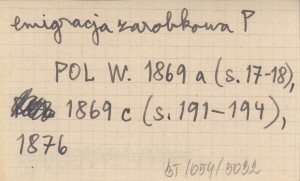 emigracja zarobkowa P
POL W. 1869 a (s. 17-18),
1869 c (s. 191-194),
1876
BJ/054/5092